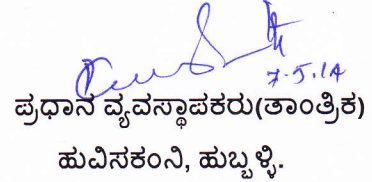 7.5.14
ಪ್ರಧಾನ ವ್ಯವಸ್ಥಾಪಕರು(ತಾಂತ್ರಿಕ)
ಹುವಿಸಕಂನಿ, ಹುಬ್ಬಳ್ಳಿ.